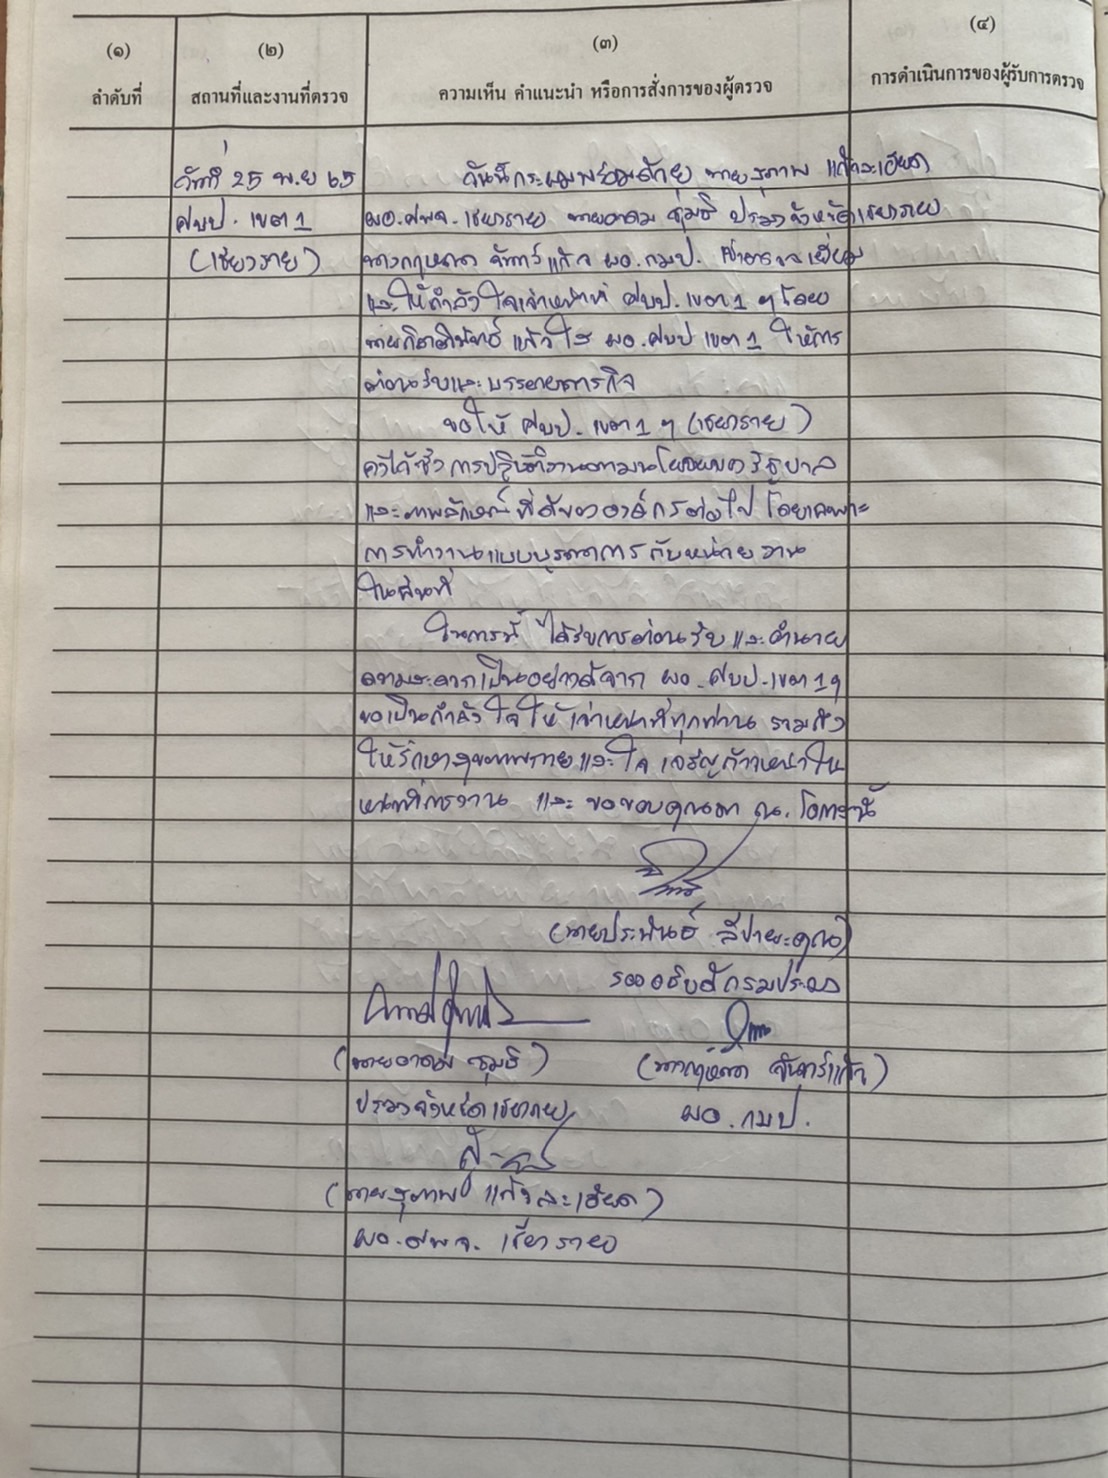 (๑)
ลำดับที่
(๒)
สถานที่และงานที่ตรวจ
(๓)
ความเห็น คำแนะนำ หรือการสั่งการของผู้ตรวจ
(๔)
การดำเนินการของผู้รับการตรวจ
วันที่ 25 พ.ย 65
ศบป. เขต 1
(เชียงราย)
วันนี้กระผมพร้อมด้วย นายสุภาพ แก้วละเอียด
ผอ.ศพจ.เชียงราย นายอาคม ชุ่มธิ ประมงจังหวัดเชียงราย
จันทร์แก้ว ผอ.กมป. เข้าตรวจเยี่ยม
และให้กำลังใจเจ้าหน้าที่ ศบป.เขต 1 ฯ โดย
แก้วใส ผอ.ศบป เขต 1 ให้การ
ต้อนรับและบรรยายภารกิจ
ขอให้ ศบป. เขต 1 ฯ (เชียงราย)
การปฏิบัติงานตามนโยบายของรัฐบาล
และภาพลักษณ์ที่ดีขององค์กรต่อไป โดยเฉพาะ
การทำงานแบบบูรณาการกับหน่วยงาน
ในพื้นที่
ในการนี้ ได้รับการต้อนรับ และอำนวย
ความสะดวกเป็นอย่างดีจาก ผอ.ศบป.เขต 1 ฯ
ขอเป็นกำลังใจให้เจ้าหน้าที่ทุกท่าน รวมถึง
ให้รักษาสุขภาพกายและใจ เจริญก้าวหน้าใน
หน้าที่การงาน และ ขอขอบคุณมา ณ. โอกาสนี้
(นายประพันธ์ ลีปายะคุณ)
รองอธิบดีกรมประมง
(นายอาคม ชุ่มธิ)
จันทร์แก้ว)
ประมงจังหวัดเชียงราย
ผอ.กมป.
(นายสุภาพ แก้วละเอียด)
ผอ.ศพจ. เชียงราย